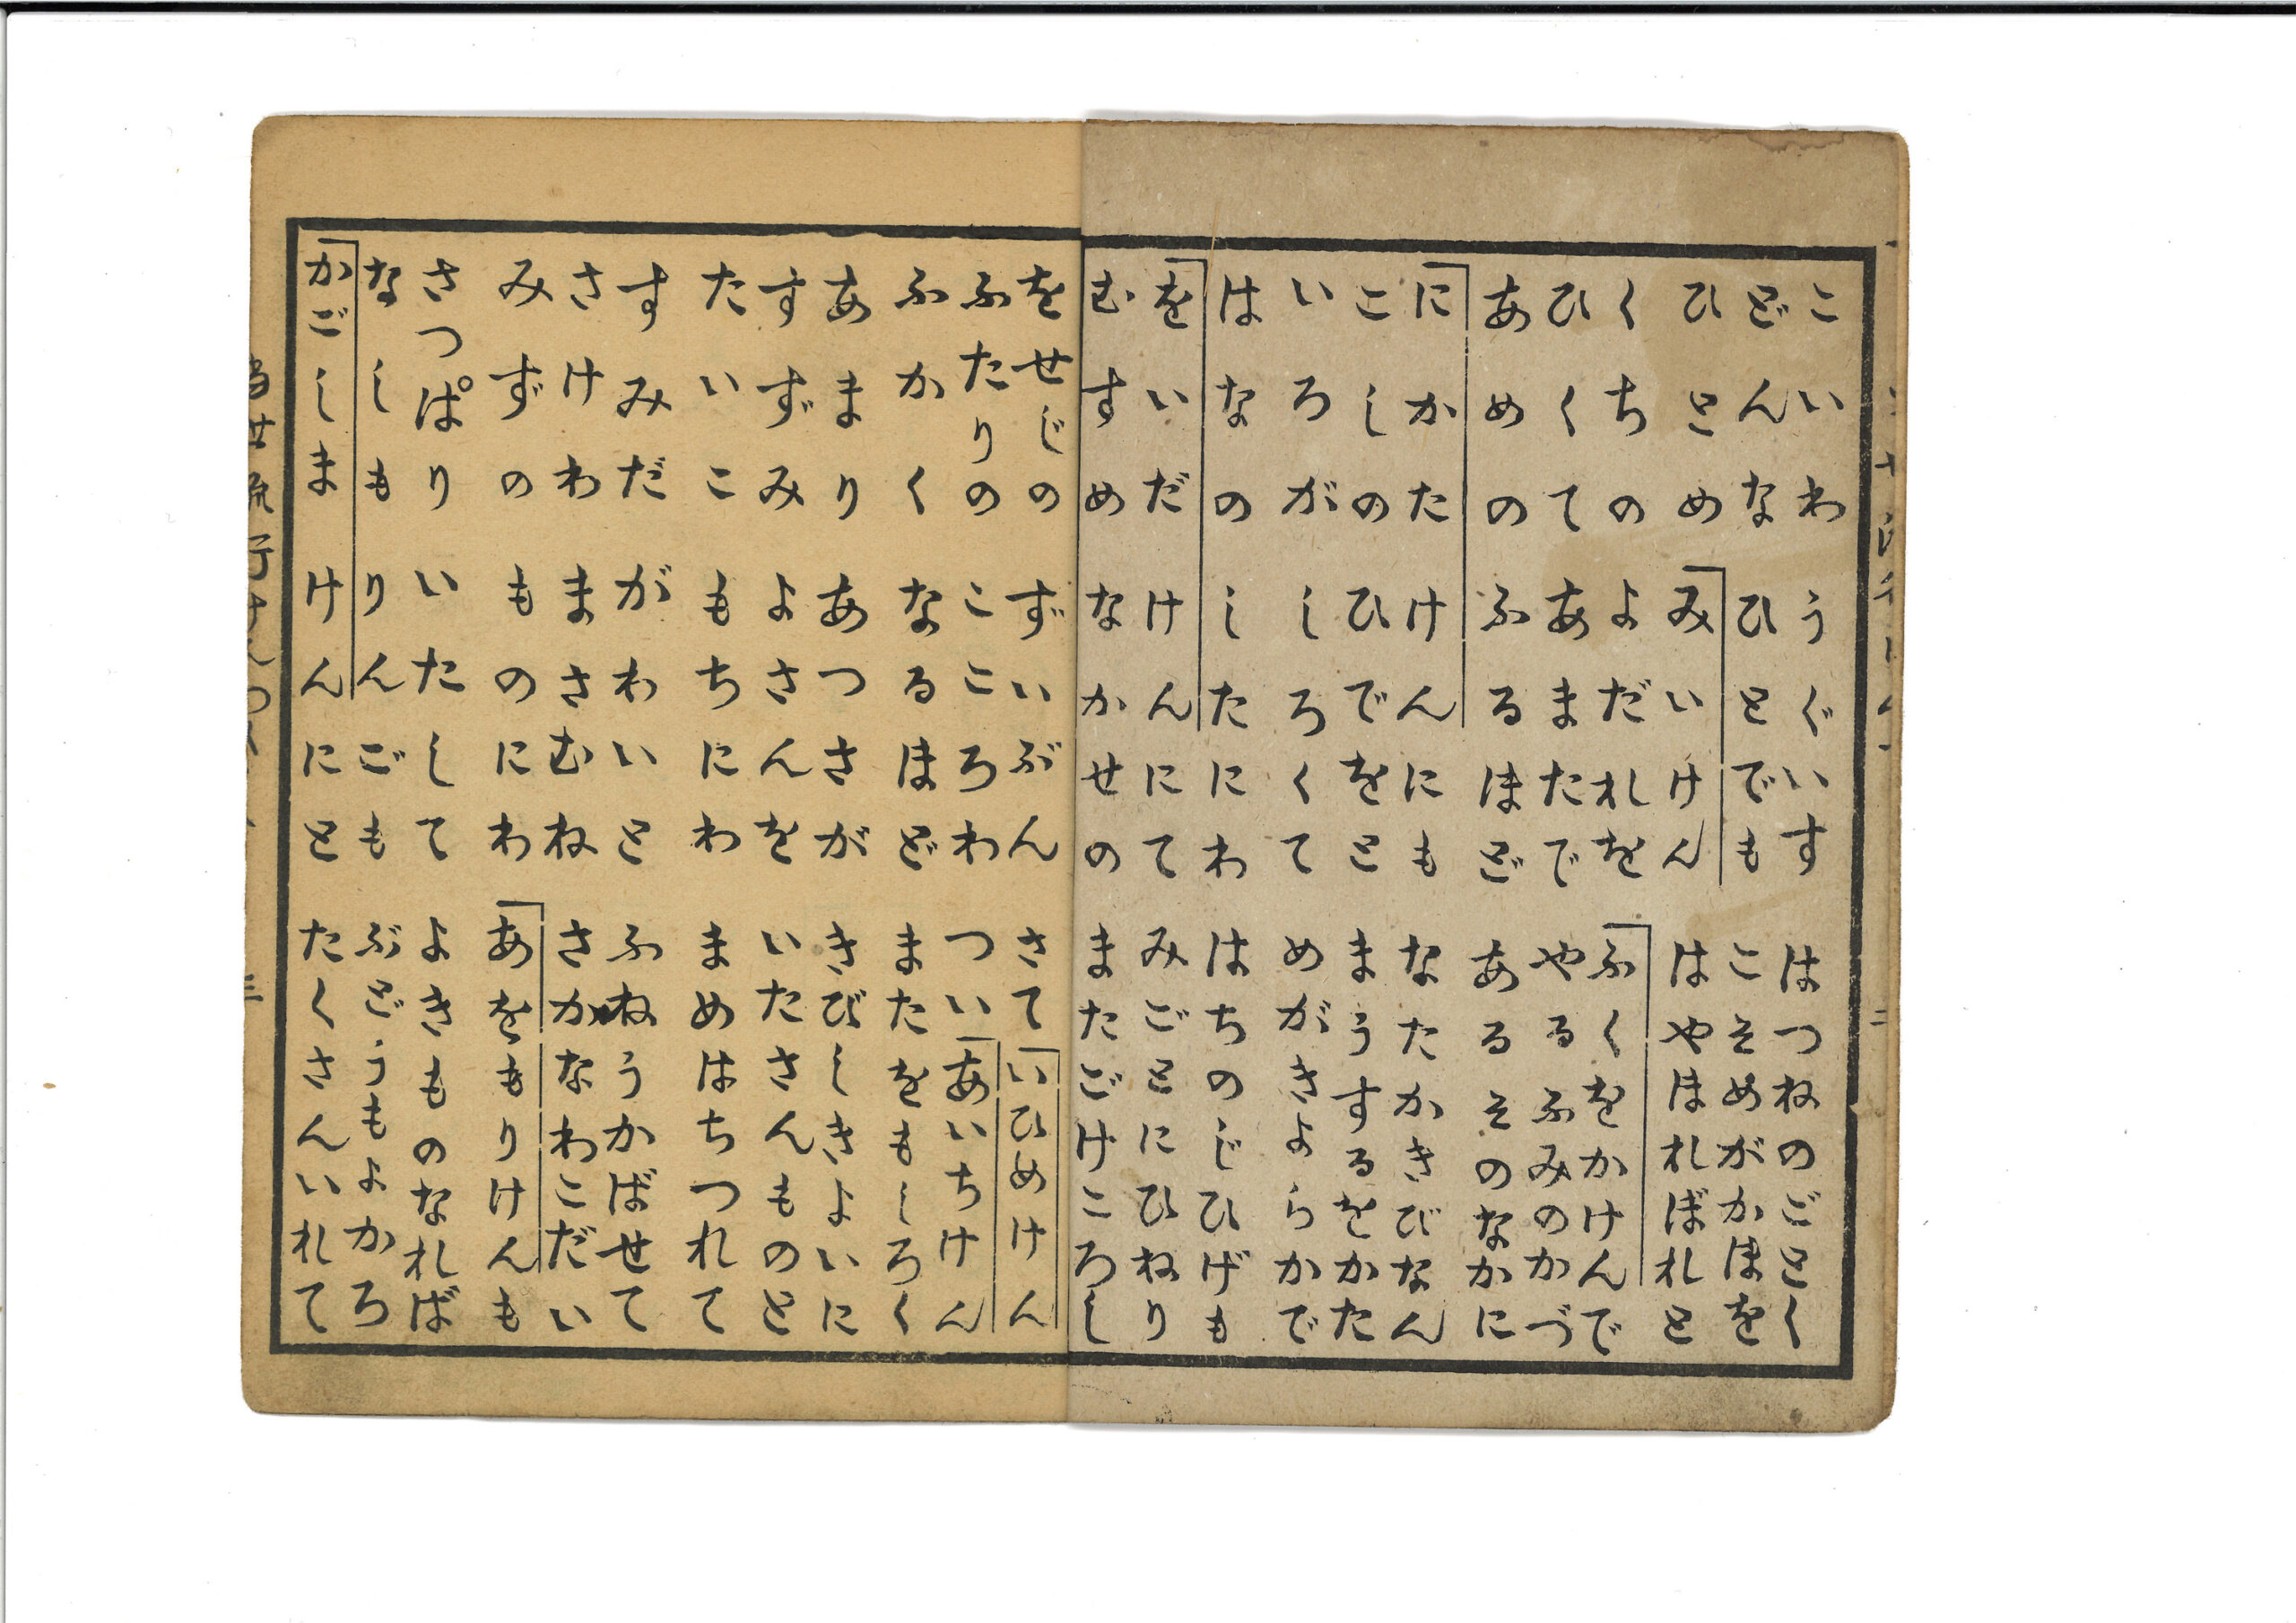 こいわうぐいすはつねのごとく
どんなひとでもこそめがかほを
ひとめみいけんはやほれぼれと
くちのよだれをふくをかけんで
ひくてあまたでやるふみのかづ
あめのふるほどあるそのなかに
にかたけんにもなたかきびなん
こしのひでをとまうするをかた
いろがしろくてめがきよらかで
はなのしたにわはちのじひげも
をいだけんにてみごとにひねり
むすめなかせのまたごけころし
をせじのずいぶんさていひめけん
ふたりのこころわついあいちけん
ふかくなるほどまたをもしろく
あまりあつさがきびしきよいに
すずみよさんをいたさんものと
たいこもちにわまめはちつれて
すみだがわいとふねうかばせて
さけわまさむねさかなわこだい
みずのものにわあをもりけんも
さつぱりいたしてよきものなれば
なしもりんごもぶどうもよかろ
かごしまけんにとたくさんいれて
三